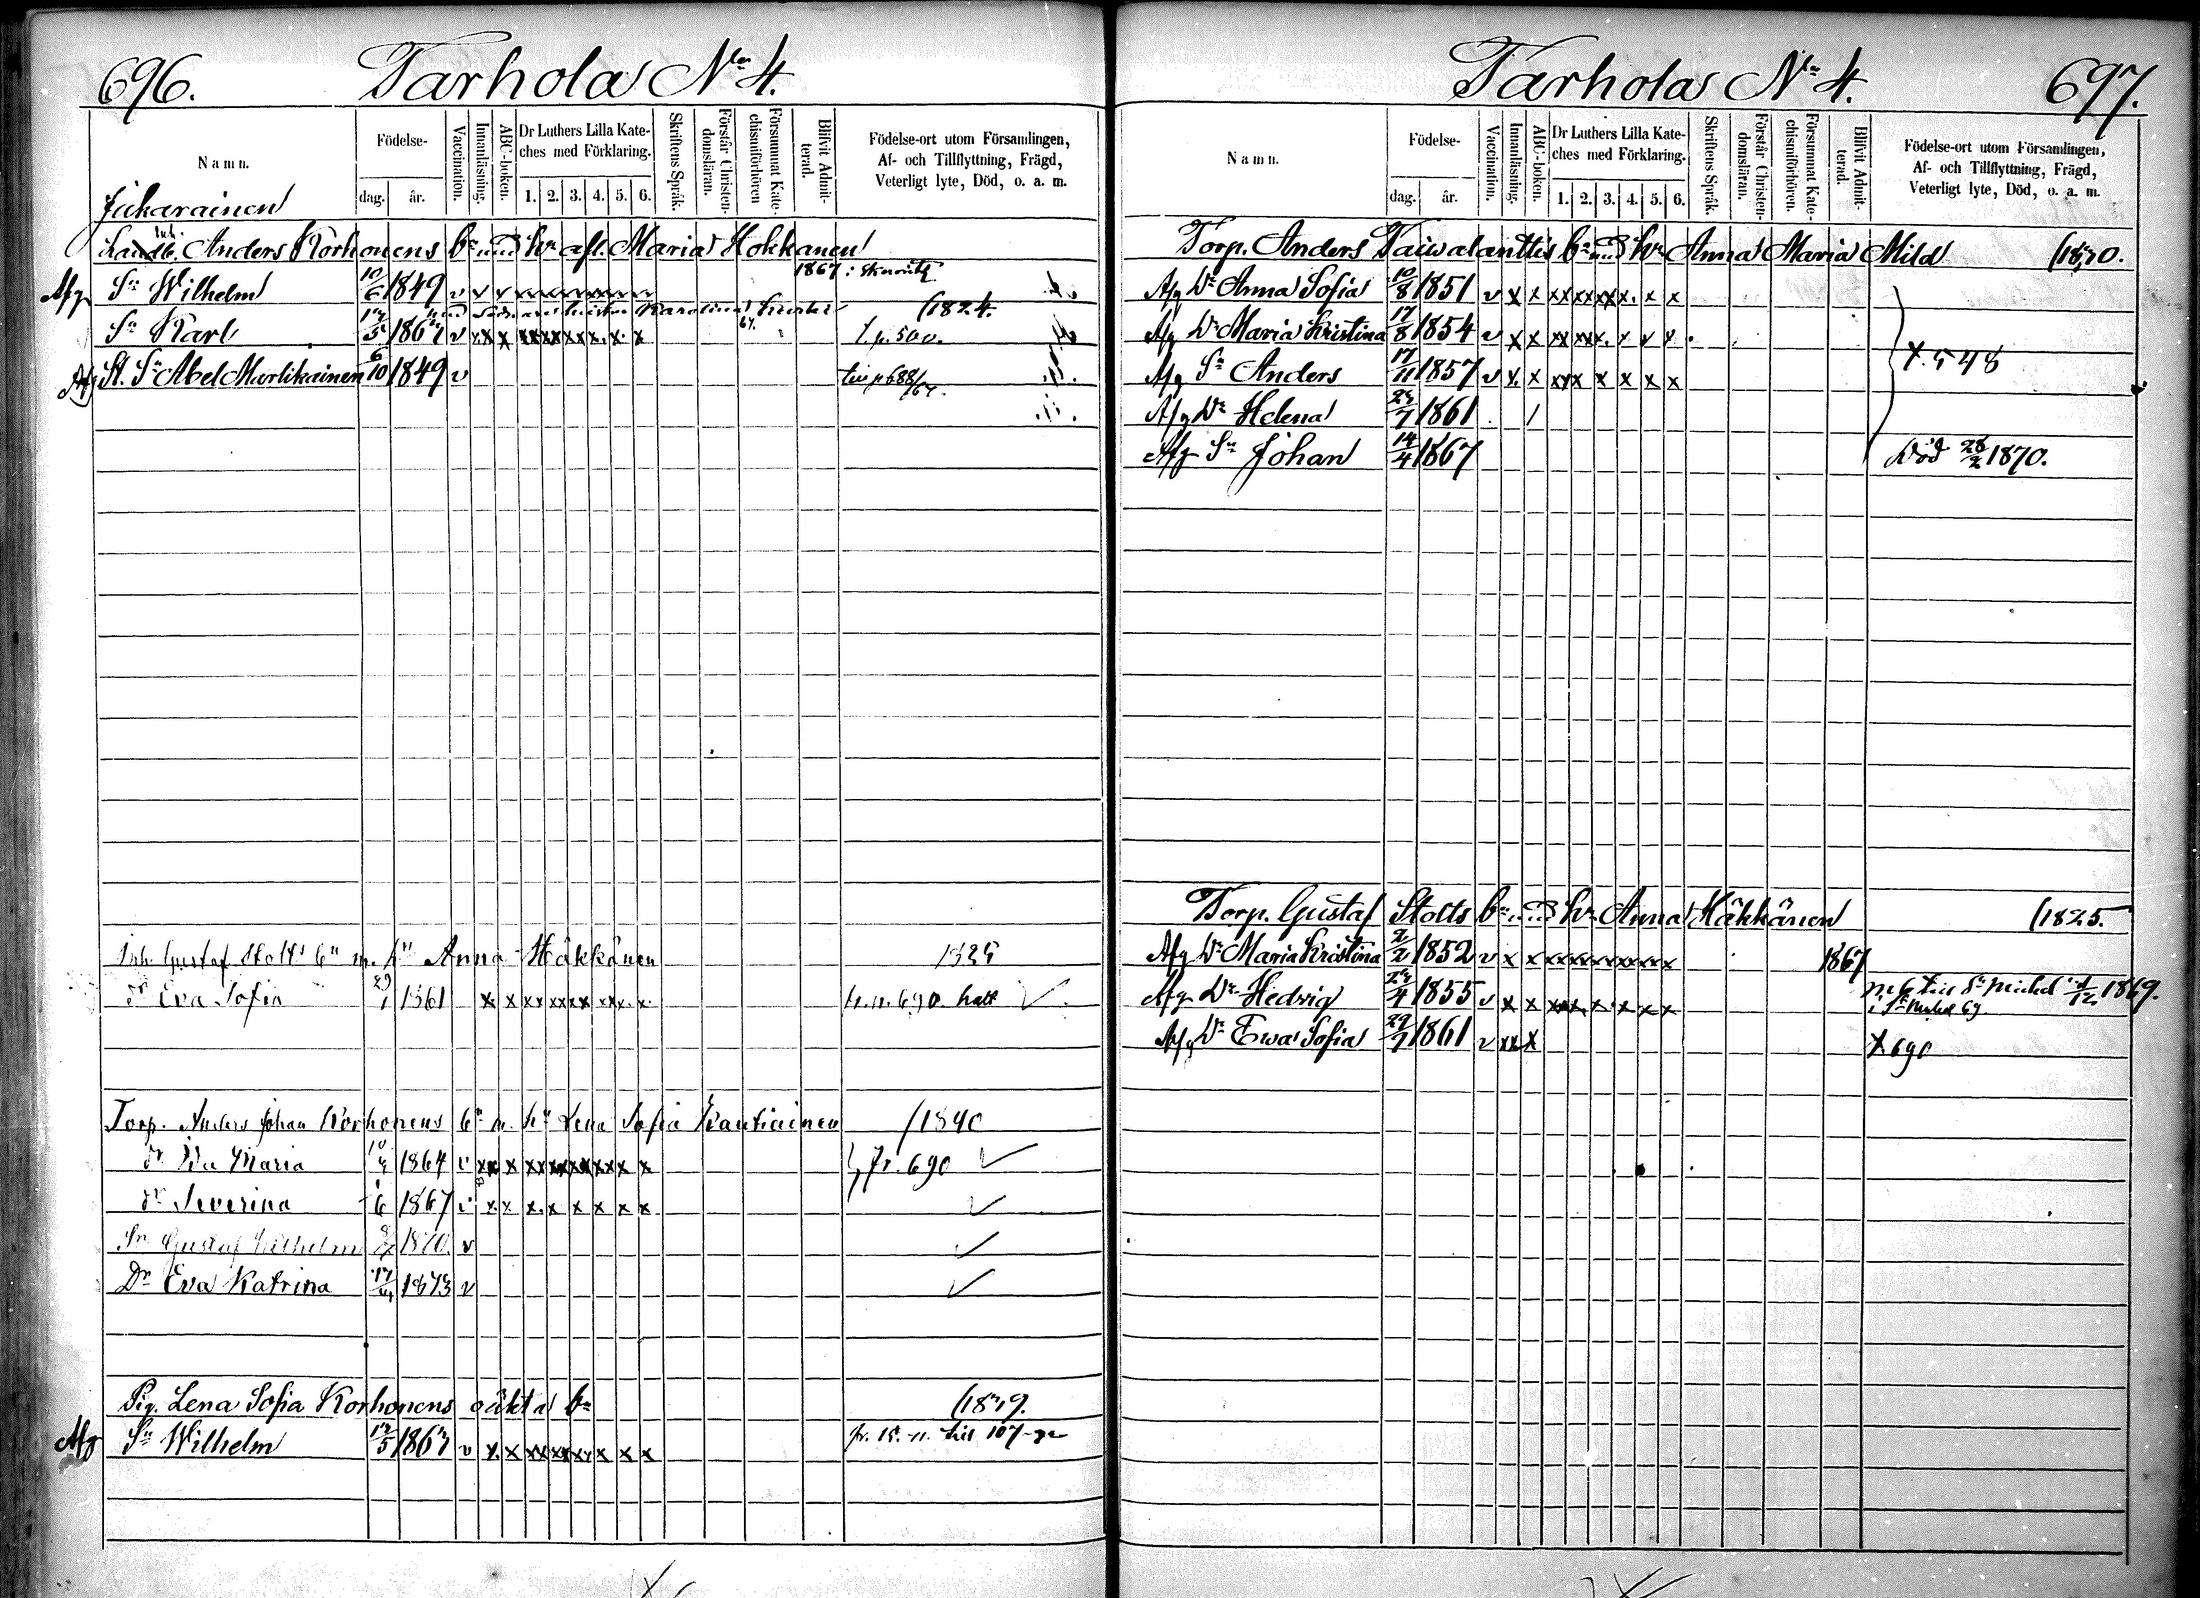 696. Tarhola No 4.
Namn.
Födelse-
dag. år.
Vaccination.
Innanläsning.
ABC-boken.
Dr Luthers Lilla Kate-
ches med Förklaring.
1. 2. 3. 4. 5. 6.
Skriftens Språk.
Förstår Christen-
domsläran.
Försummat Kate-
chismiförhören
Blifvit Admit-
terad.
Födelse-ort utom Församlingen,
Af- och Tillflyttning, Frägd,
Veterligt lyte, Död, o. a. m.
Jukarainen
Inh. Anders Korhonens bn und hn afl. Maria Hokkanen
Afg Sn Wilhelm 10/6 1849 v v v 1867
Sn Karl 5 186 v x x x x x x x x x f. p. 500.
Afg St. Sn Abel Marlikainen 6/10 1849 v till p 688/67.
Inh. Gustaf Stolts bn m. hn Anna Häkkänen 1825
dr Eva Sofia 29/ 1861 x x xx xx xx xx x. x. fr. p. 690. halt
Torp. Anders Johan Korhonens bn m. hn Lena Sofia Rautiainen /1840
dr Ida Maria 10/ 1864 v xx x xx xx xx xx x x fr. 690
dr Severina /6 1867 v x. x. x. x x x x x
Sn Gustaf Wilhelm 1870. v
Dr Eva Katrina 17/ 1873 v
Pig. Lena Sofia Korhonens oäkta bn
Afg Sn Wilhelm /5 186 v x. x xx xx xx x x x till 107
Tarhola No 4. 697.
Namn.
Födelse-
dag. år.
Vaccination.
Innanläsning.
ABC-boken.
Dr Luthers Lilla Kate-
ches med Förklaring.
1. 2. 3. 4. 5. 6.
Skriftens Språk.
Förstår Christen-
domsläran.
Försummat Kate-
chismiförhören.
Blifvit Admit-
terad.
Födelse-ort utom Församlingen,
Af- och Tillflyttning, Frägd,
Veterligt lyte, Död, o. a. m.
Torp. Anders Taiwalanttis bn und hn Anna Maria Mild
Afg Dr Anna Sofia 10/8 1851 v x x xx xx xx x. x x
Afg Dr Maria Kristina 17/8 1854 v x x xx xx x. x x x
Afg Sn Anders 17/11 1857 v x. x xx x x x x x f. 548
Afg Dr Helena /7 1861
Afg Sn Johan 14/4 1867 Död 28/2 1870.
Torp. Gustaf Stolts bn und hn Anna Häkkänen /1825.
Afg Dr Maria Kristina 2/2 1852 v x x xx xx xx xx x x 1867
Afg Dr Hedvig /4 1855 v x x xx x x x x x m b till St Michel /12 1869.
i St Michel 69.
Afg Dr Ewa Sofia 29/7 1861 v xx x f 690